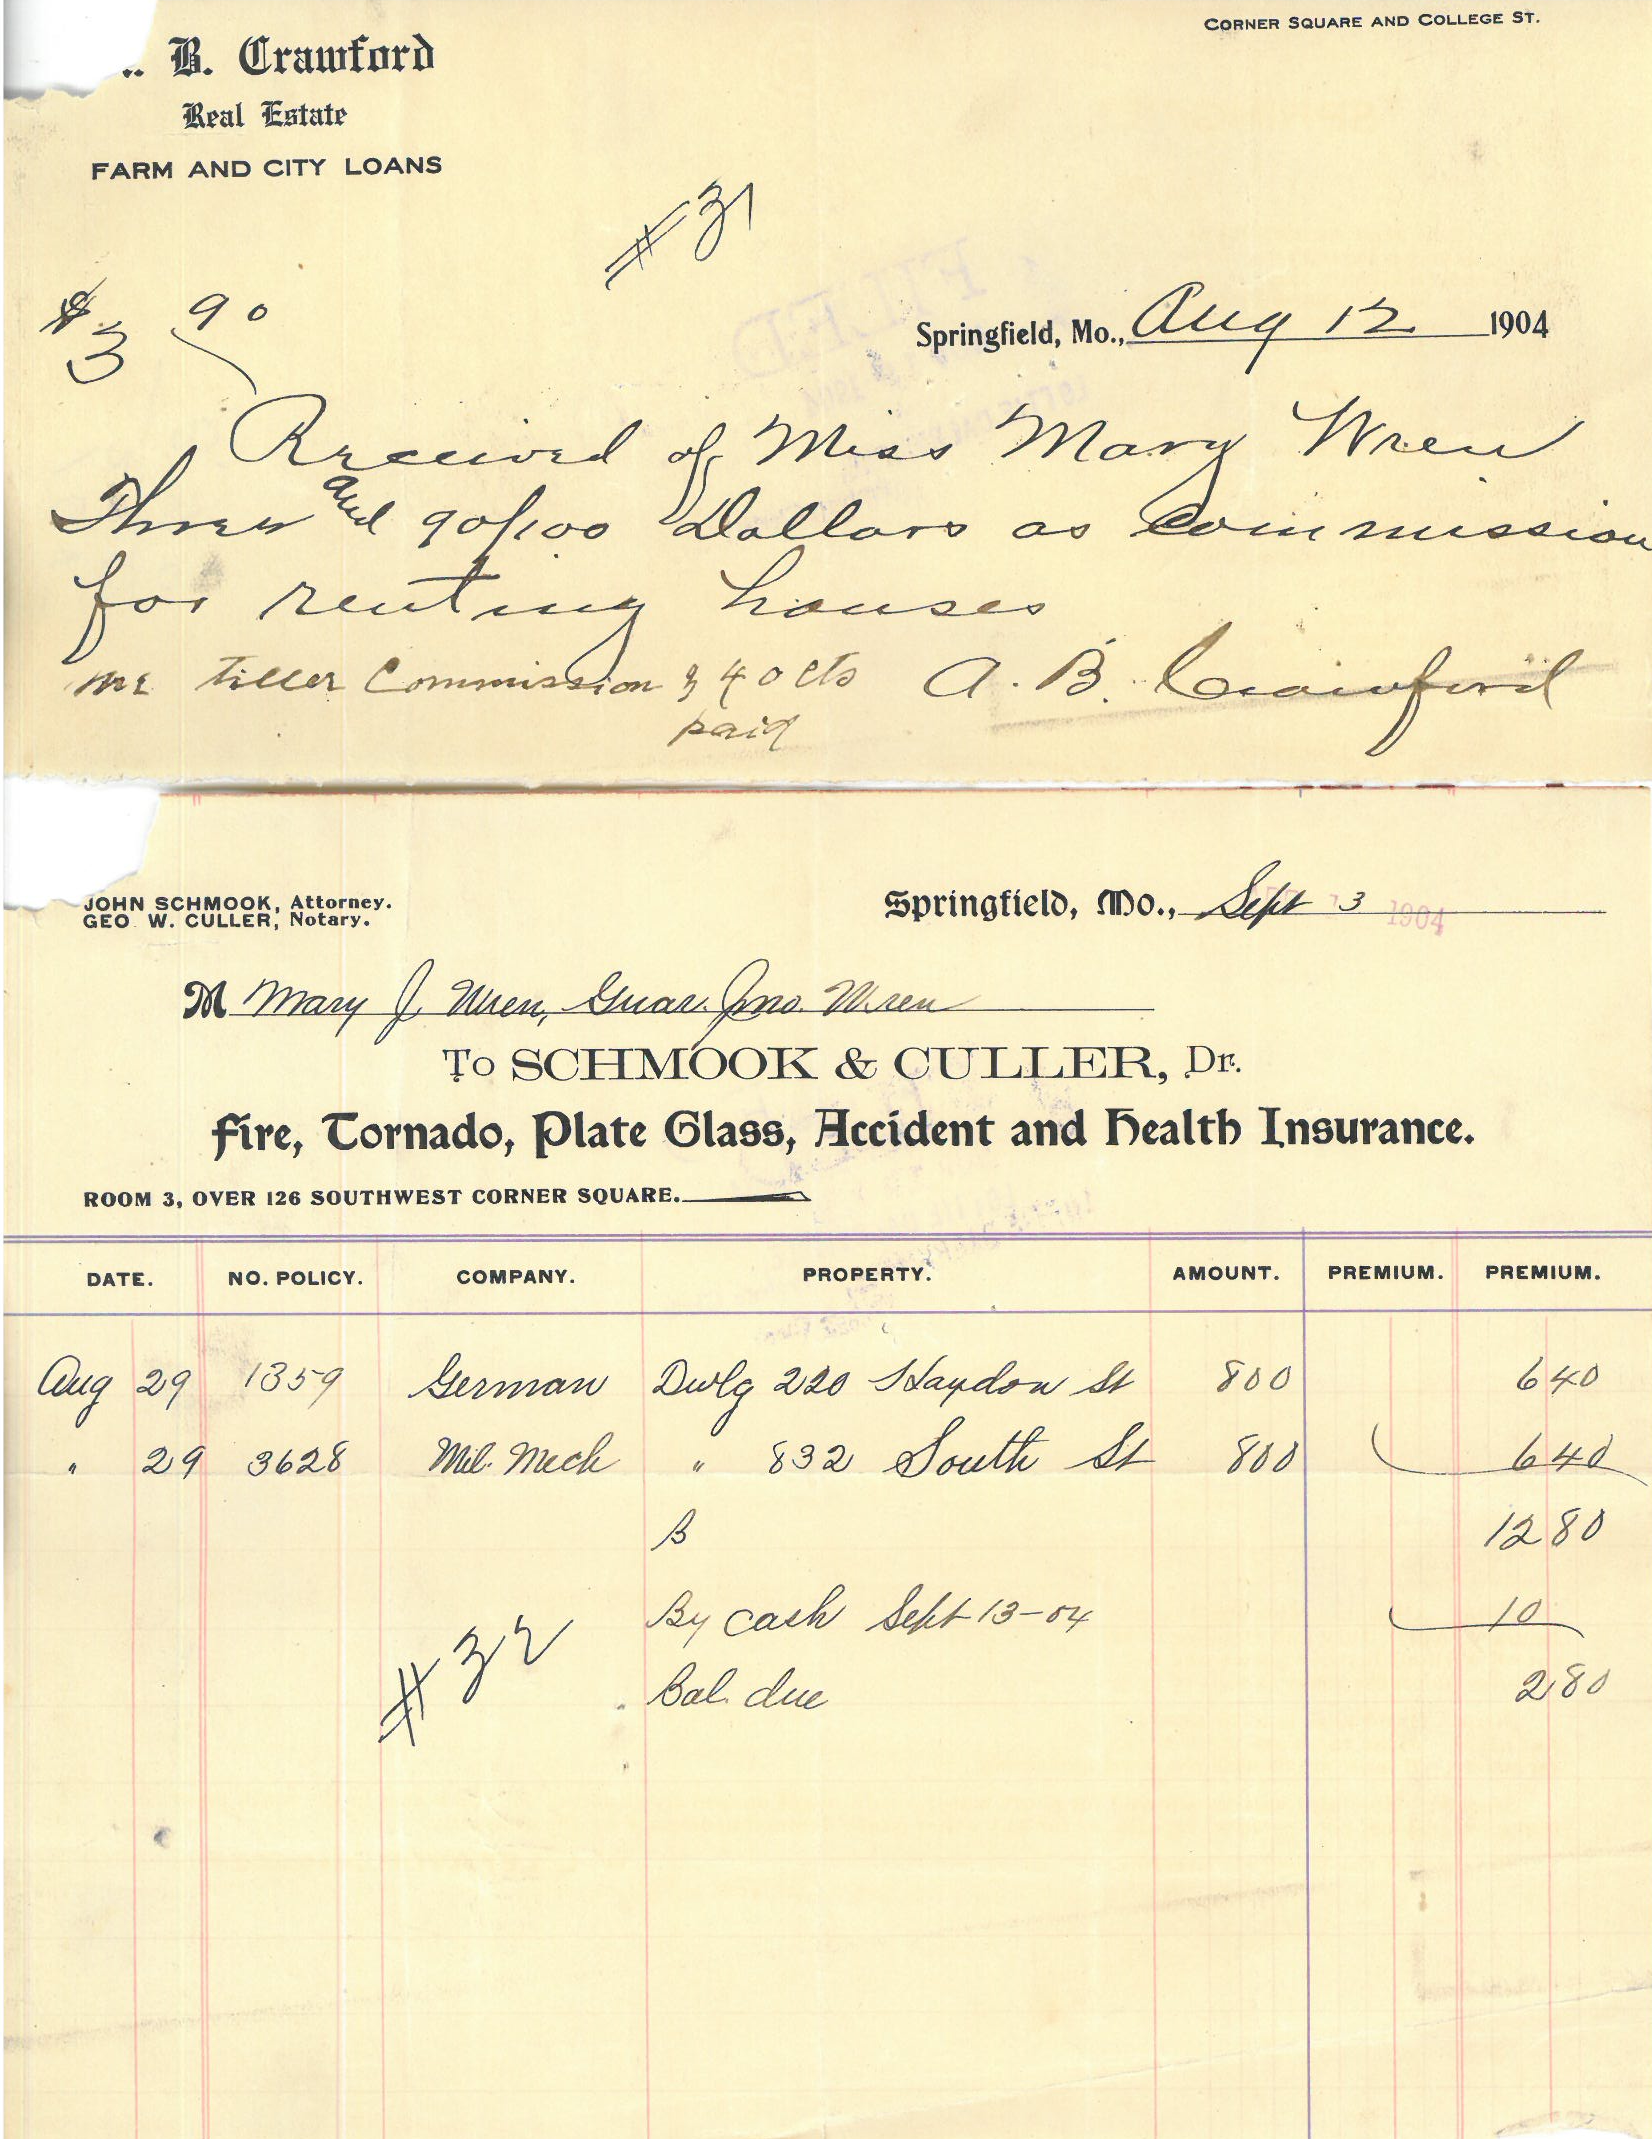 CORNER SQUARE AND COLLEGE ST.
B. Crawford
Real Estate
FARM AND CITY LOANS
#31
$3 90
Springfield, Mo., Aug 12 1904
Received of Miss Mary Wren
Three and 90/100 Dollars as Commission
for renting houses
Commission 40 cts A. B. Crawford
paid
JOHN SCHMOOK, Attorney.
GEO W. CULLER, Notary.
Springfield, Mo., Sept 3 1904
M Mary J. Wren, Guar. Jno. Wren
To SCHMOOK & CULLER, Dr.
Fire, Tornado, Plate Glass, Accident and Health Insurance.
ROOM 3, OVER 126 SOUTHWEST CORNER SQUARE.
DATE. NO. POLICY. COMPANY. PROPERTY. AMOUNT. PREMIUM. PREMIUM.
Aug 29 1359 German Dwlg 220 Haydon St 800 6 40
" 29 3628 Mil. Mech " 832 South St 800 6 40
B 12 80
By cash Sept 13-04 10
#32
Bal. due 2 80